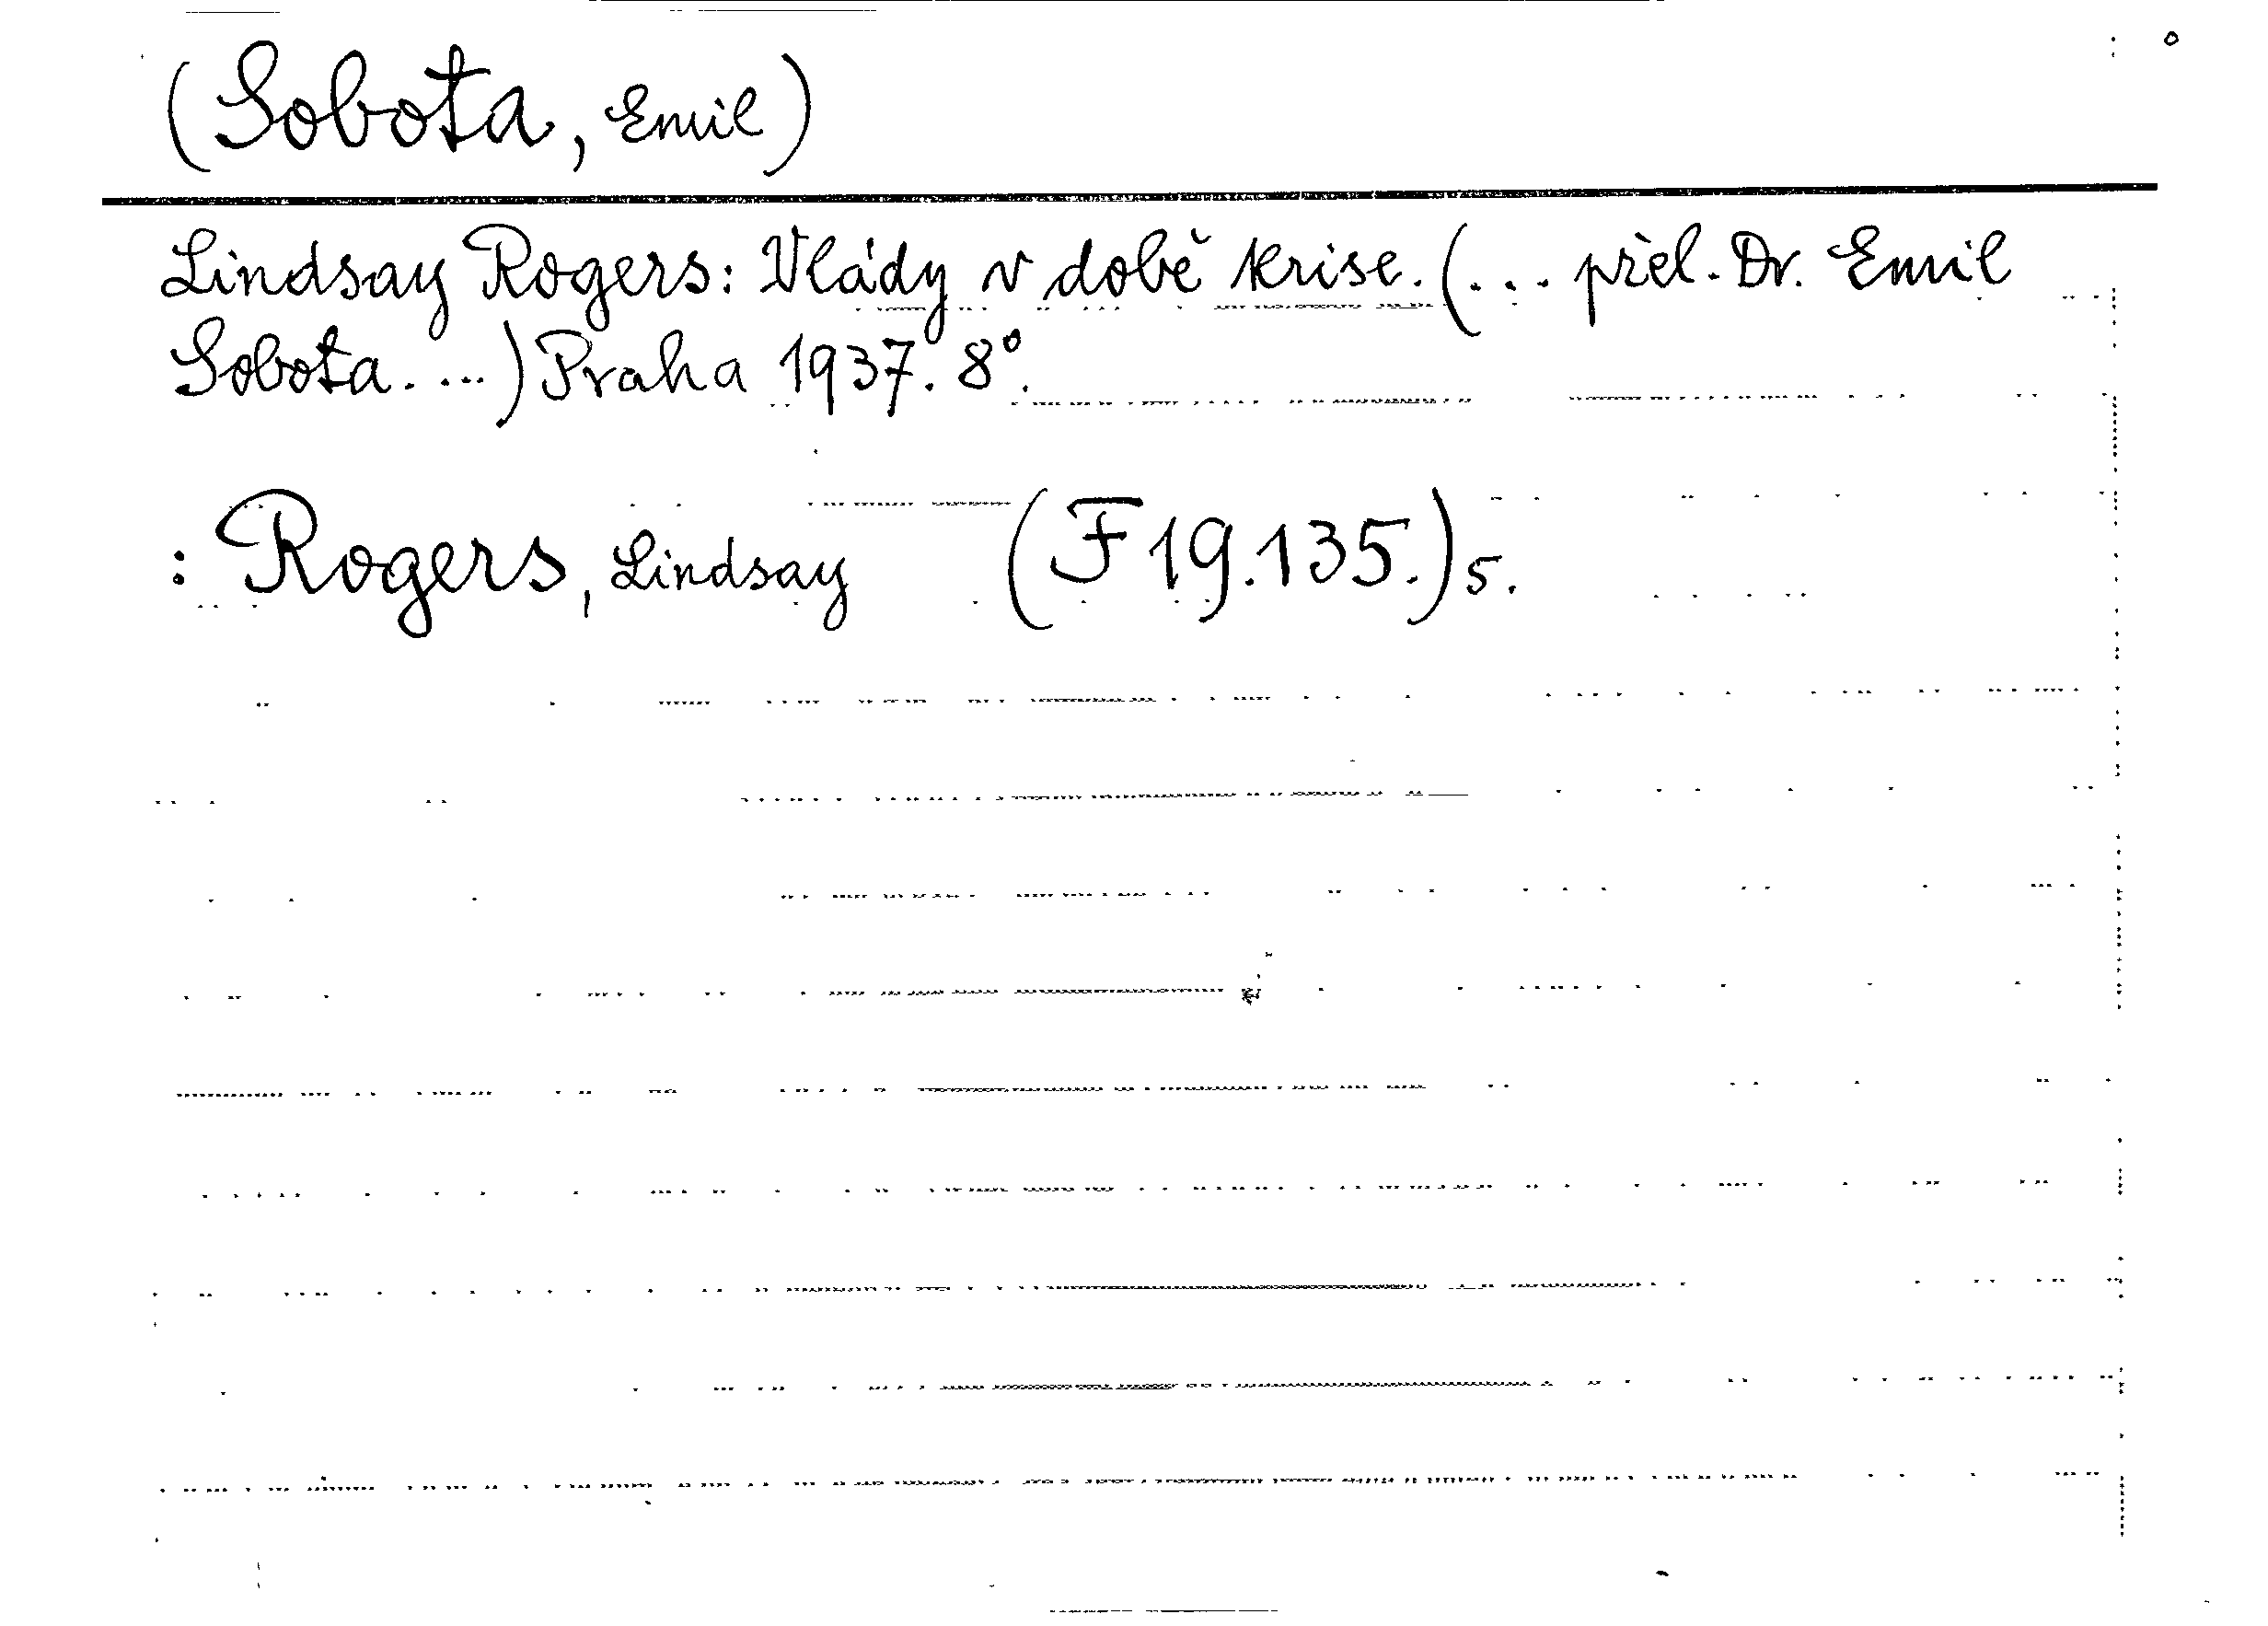 (Sobota, Emil)
Lindsay Rogers: Vlády v době krise. (... přel. Dr. Emil
Sobota. ...) Praha 1937. 8°.
: Rogers, Lindsay (F 19.135.) 5.